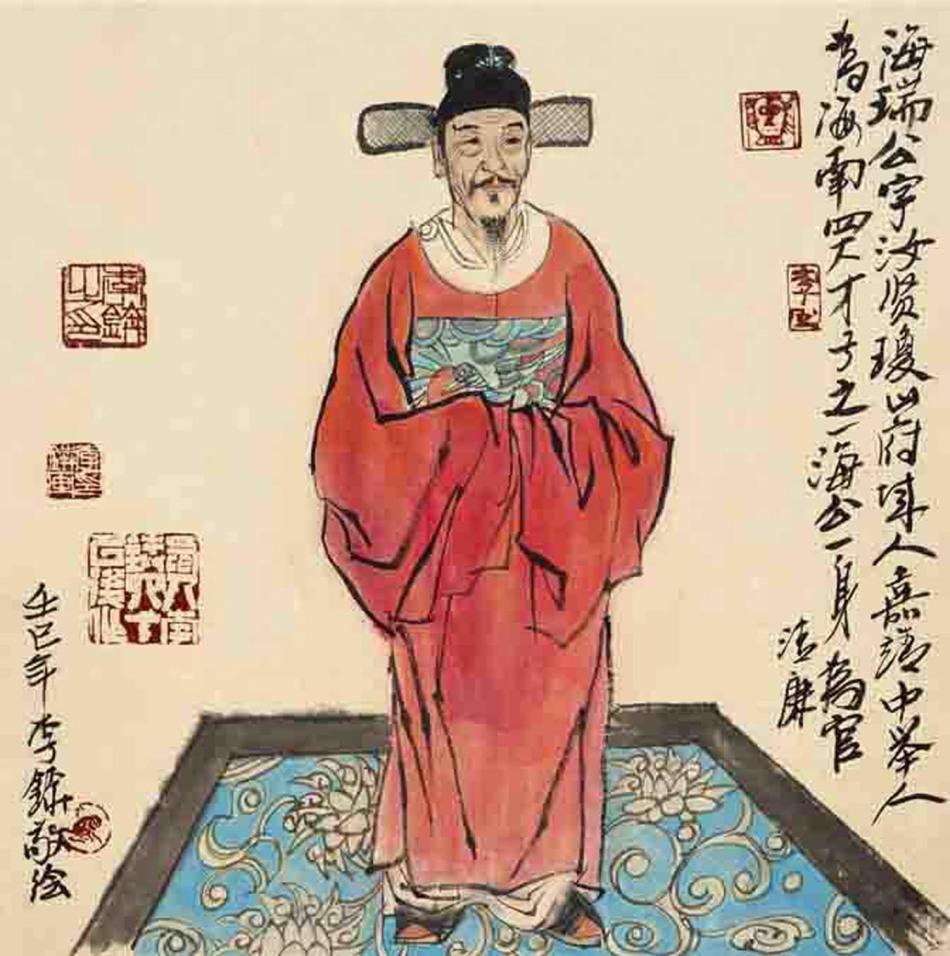 海瑞公字汝贤瓊山府城人嘉靖中举人
為海南四大才子之一海公一身為官
清廉
壬巳年李敬绘